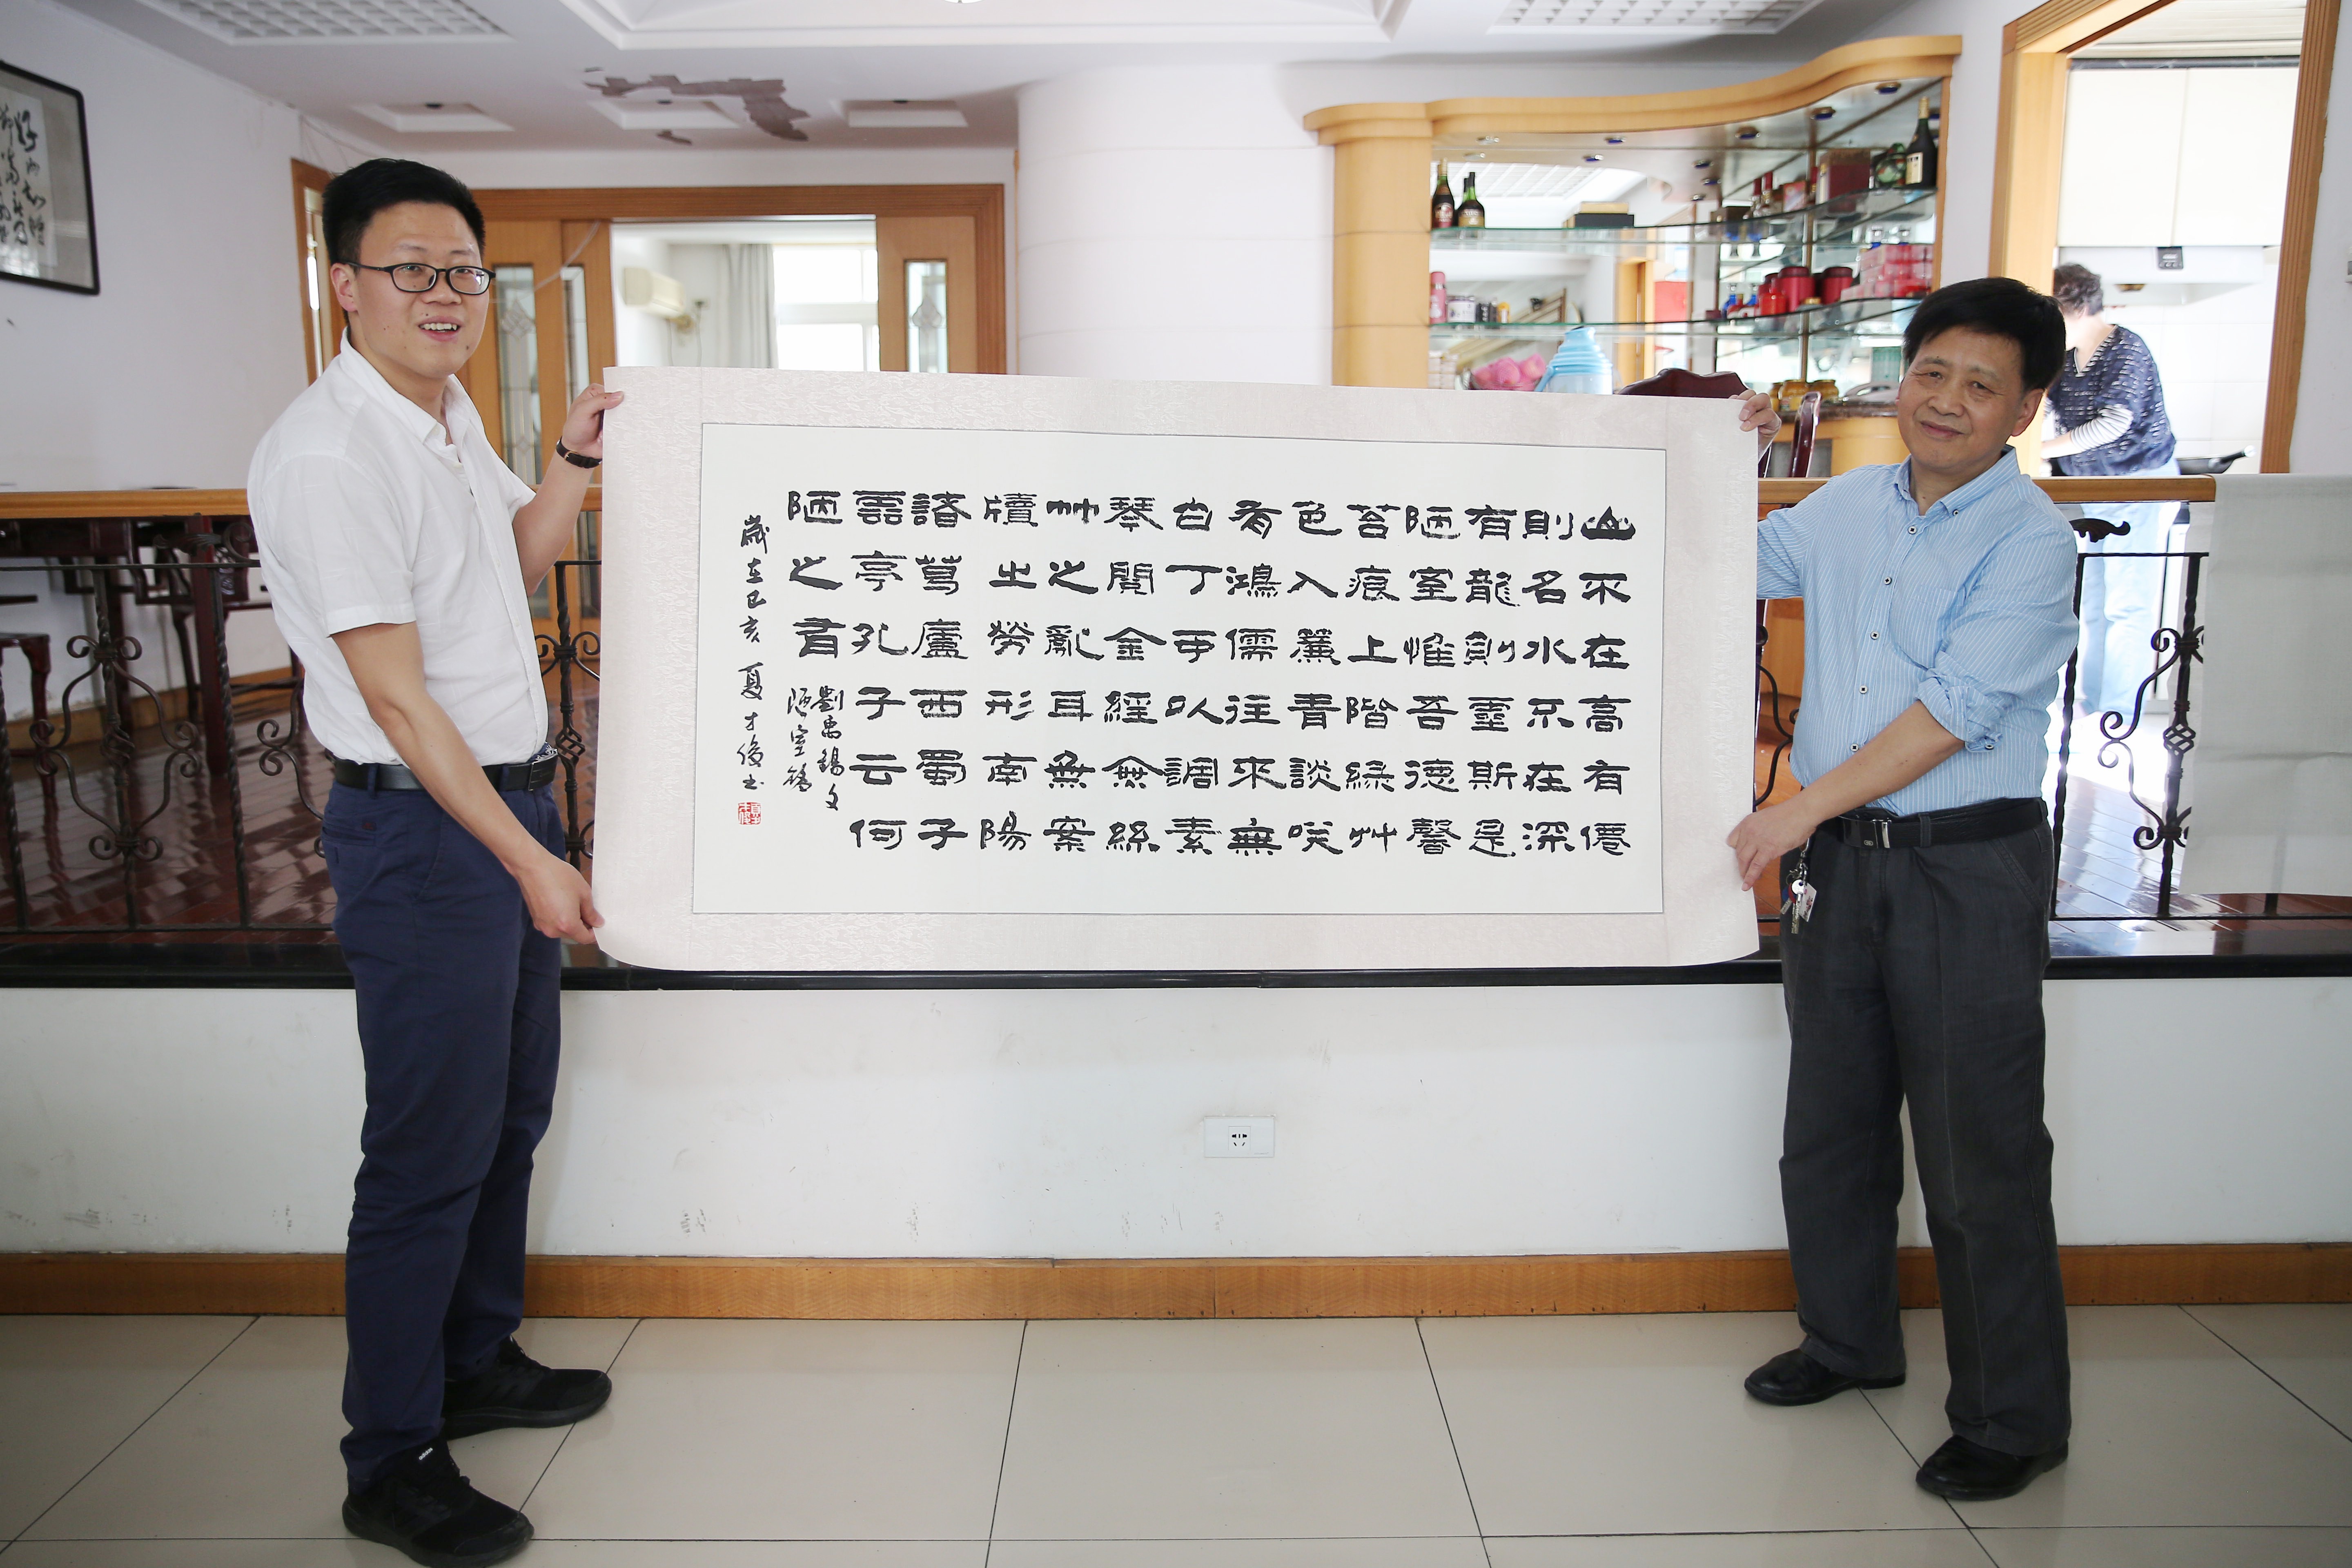 山不在高有僊
則名水不在深
有龍則靈斯是
陋室惟吾德馨
苔痕上階綠艸
色入簾青談咲
有鴻儒往來無
白丁可以調素
琴閱金經無絲
竹之亂耳無案
牘之勞形南陽
諸葛廬西蜀子
雲亭孔子云何
陋之有
劉禹錫文
陋室銘
歲在己亥夏才俊书